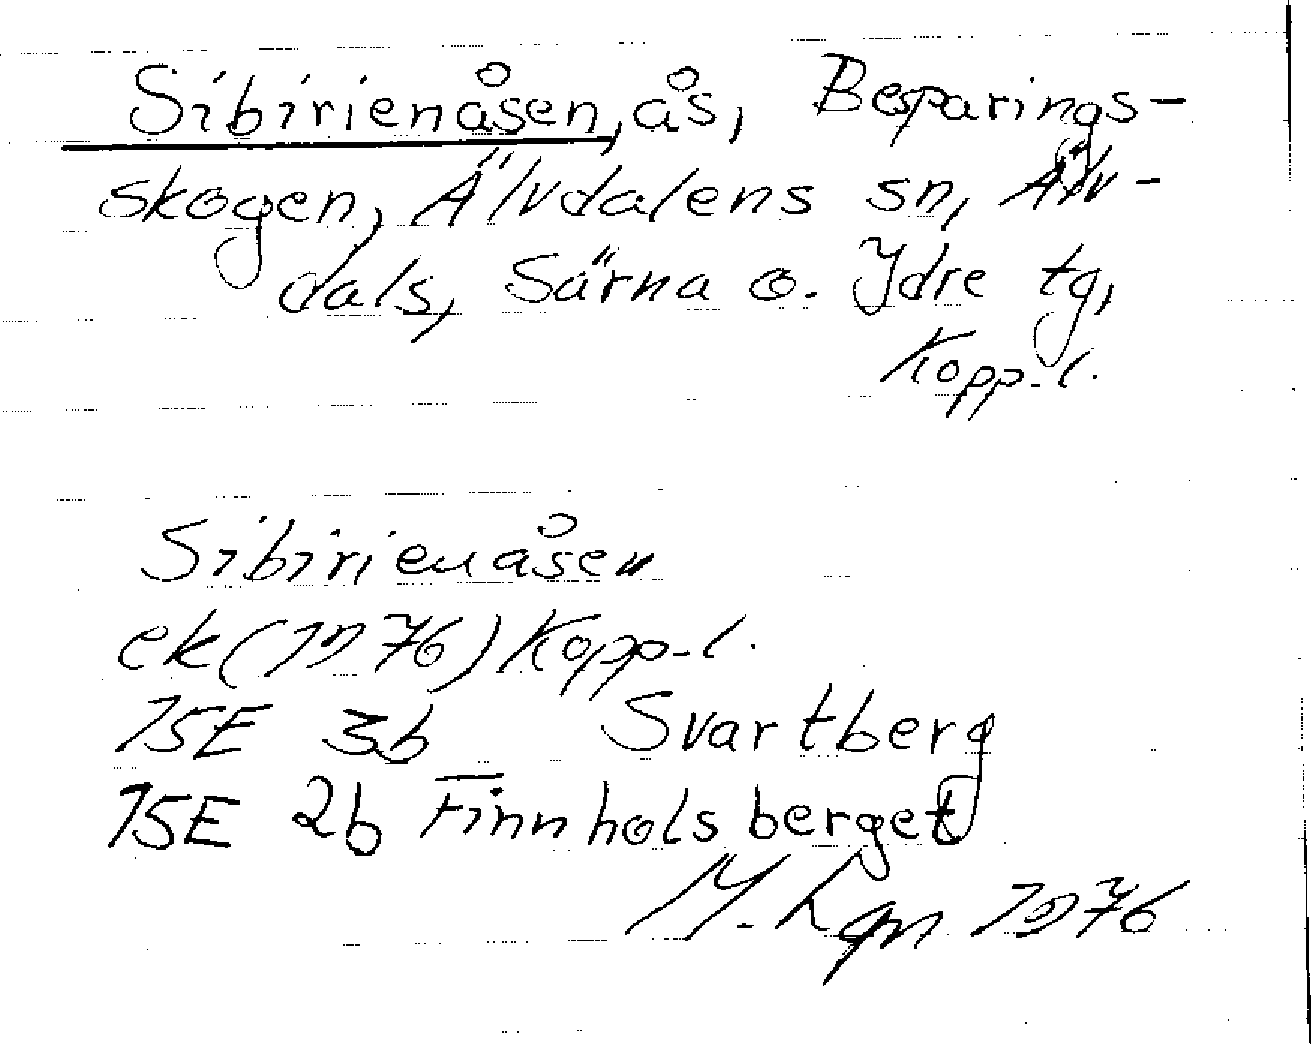 Sibirienåsen, ås, Besparings-
skogen, Älvdalens sn, Älv-
dals, Särna o. Idre tg,
Kopp-l.
Sibirienåsen
ek (1976) Kopp-l.
15E 3b Svartberg
15E 2b Finnholsberget
M. Lgn 1976